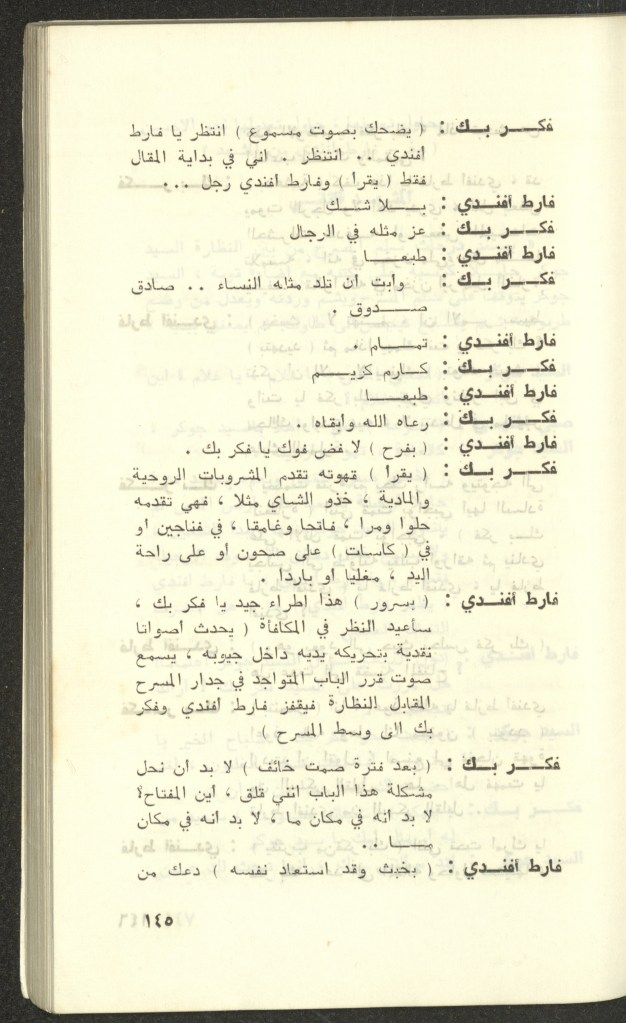 فكـــر بـــك : ( يضحك بصوت مسموع ) انتظر يا فارط
أفندي .. انتنظر . اني في بداية المقال
فقط ( يقرأ ) وفارط افندي رجل ...
فارط أفنـــدي : بـــــلا شـــك
فكـــر بـــك : عز مثله في الرجال
فارط أفنـــدي : طبعـــــا
فكـــر بـــك : وأبت ان تلد مثله النساء .. صادق
صــــدوق .
فارط أفنـــدي : تمـــــام
فكـــر بـــك : كـــارم كريـــم
فارط أفنـــدي : طبعـــــا
فكـــر بـــك : رعاه الله وأبقاه .
فارط أفنـــدي : ( بفرح ) لا فض فوك يا فكر بك .
فكـــر بـــك : ( يقرأ ) قهوته تقدم المشروبات الروحية
والمادية ، خذو الشاي مثلا ، فهي تقدمه
حلوا ومرا ، فاتحا وغامقا ، في فناجين او
في ( كاسات ) على صحون او على راحة
اليد ، مغليا او باردا .
فارط أفنـــدي : ( بسرور ) هذا اطراء جيد يا فكر بك ،
سأعيد النظر في المكافأة ( يحدث اصواتا
نقدية بتحريكه يديه داخل جيوبه ، يسمع
صوت قرر الباب المتواجد في جدار المسرح
المقابل النظارة فيقفز فارط أفندي وفكر
بك الى وسط المسرح )
فكـــر بـــك : ( بعد فترة صمت خائف ) لا بد ان نحل
مشكلة هذا الباب انني قلق ، اين المفتاح؟
لا بد انه في مكان ما ، لا بد انه في مكان
مـــا ..
فارط أفنـــدي : ( بخبث وقد استعاد نفسه ) دعك من
١٤٥